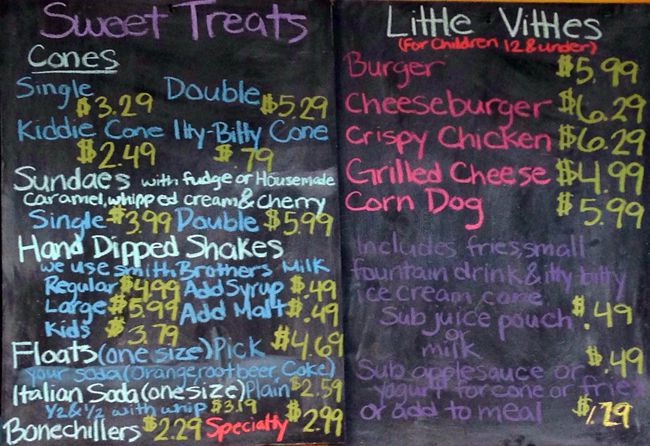 Sweet Treats
Cones
Single Double
$3.29 $5.29
Kiddie Cone Itty-Bitty Cone
$2.49 $.79
Sundaes with fudge or Housemade
Caramel, whipped cream & cherry
Single $3.99 Double $5.99
Hand Dipped Shakes
we use Smith Brothers Milk
Regular $4.99 Add Syrup $.49
Large $5.99 Add Malt $.49
Kids $3.79
Floats (one size) Pick $4.69
your soda (Orange, rootbeer, Coke)
Italian Soda (one size) Plain $2.59
1/2 & 1/2 with whip $3.19
Bonechillers $2.29 Specialty $2.99
Little Vittles
(For Children 12 & under)
Burger $5.99
Cheeseburger $6.29
Crispy Chicken $6.29
Grilled Cheese $4.99
Corn Dog $5.99
Includes fries, small
fountain drink & itty bitty
ice cream cone
Sub juice pouch $.49
or
milk
Sub applesauce or $.49
yogurt for cone or fries
or add to meal $1.29